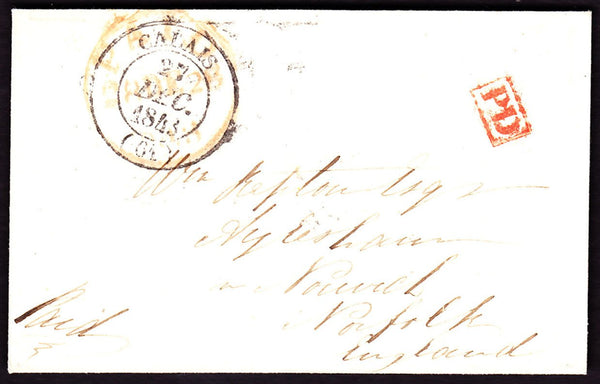 CALAIS
27
DEC.
1843
(61)
PD
Wm Repton Esqr
Aylesham
Norwich
Norfolk
England
Paid